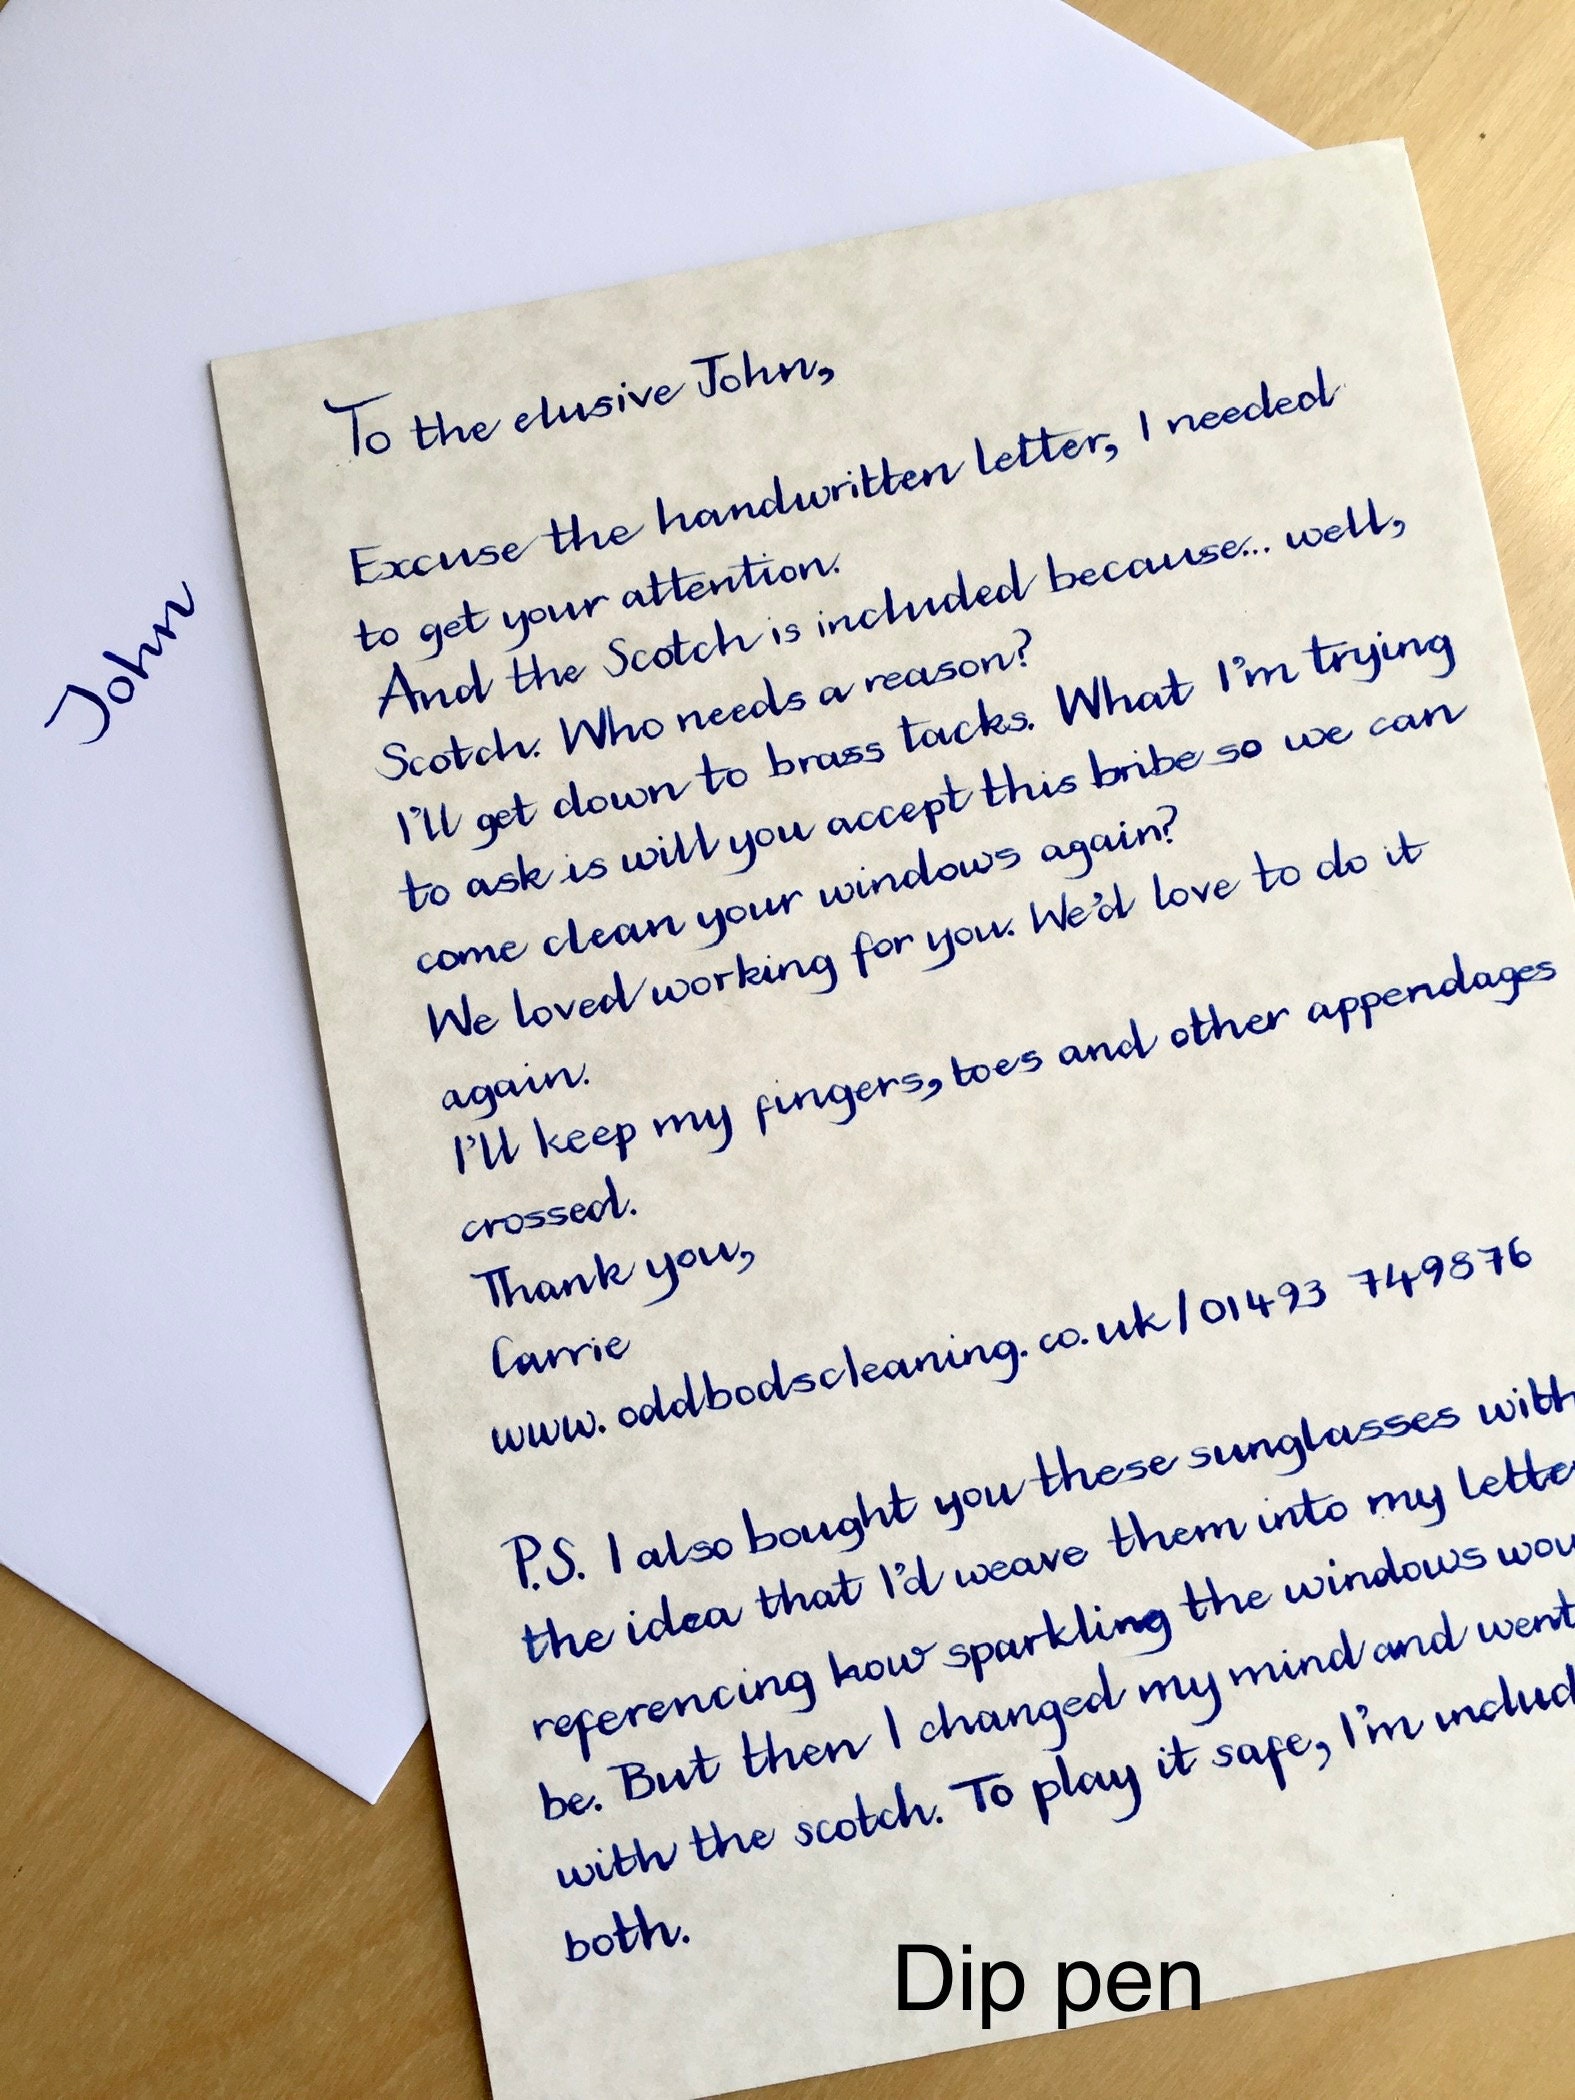 John
To the elusive John,
Excuse the handwritten letter, I needed
to get your attention.
And the Scotch is included because... well,
Scotch. Who needs a reason?
I'll get down to brass tacks. What I'm trying
to ask is will you accept this bribe so we can
come clean your windows again?
We loved working for you. We'd love to do it
again.
I'll keep my fingers, toes and other appendages
crossed.
Thank you,
Carrie
www.oddbodscleaning.co.uk/01493 749876
P.S. I also bought you these sunglasses with
the idea that I'd weave them into my letter
referencing how sparkling the windows wou
be. But then I changed my mind and went
with the scotch. To play it safe, I'm includ
both.
Dip pen